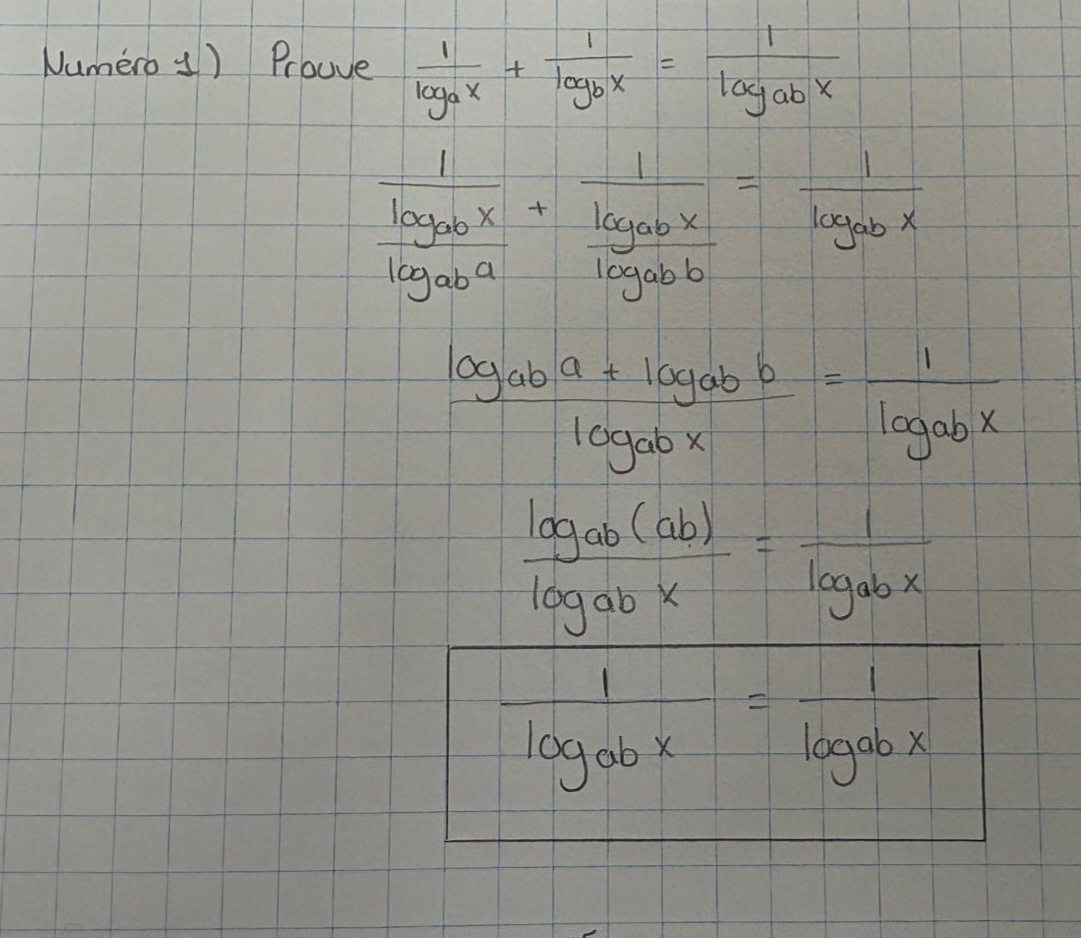 Numéro 1) Prouve 1/log_a x + 1/log_b x = 1/log_ab x
1/(log_ab x / log_ab a) + 1/(log_ab x / log_ab b) = 1/log_ab x
(log_ab a + log_ab b)/log_ab x = 1/log_ab x
log_ab (ab)/log_ab x = 1/log_ab x
1/log_ab x = 1/log_ab x